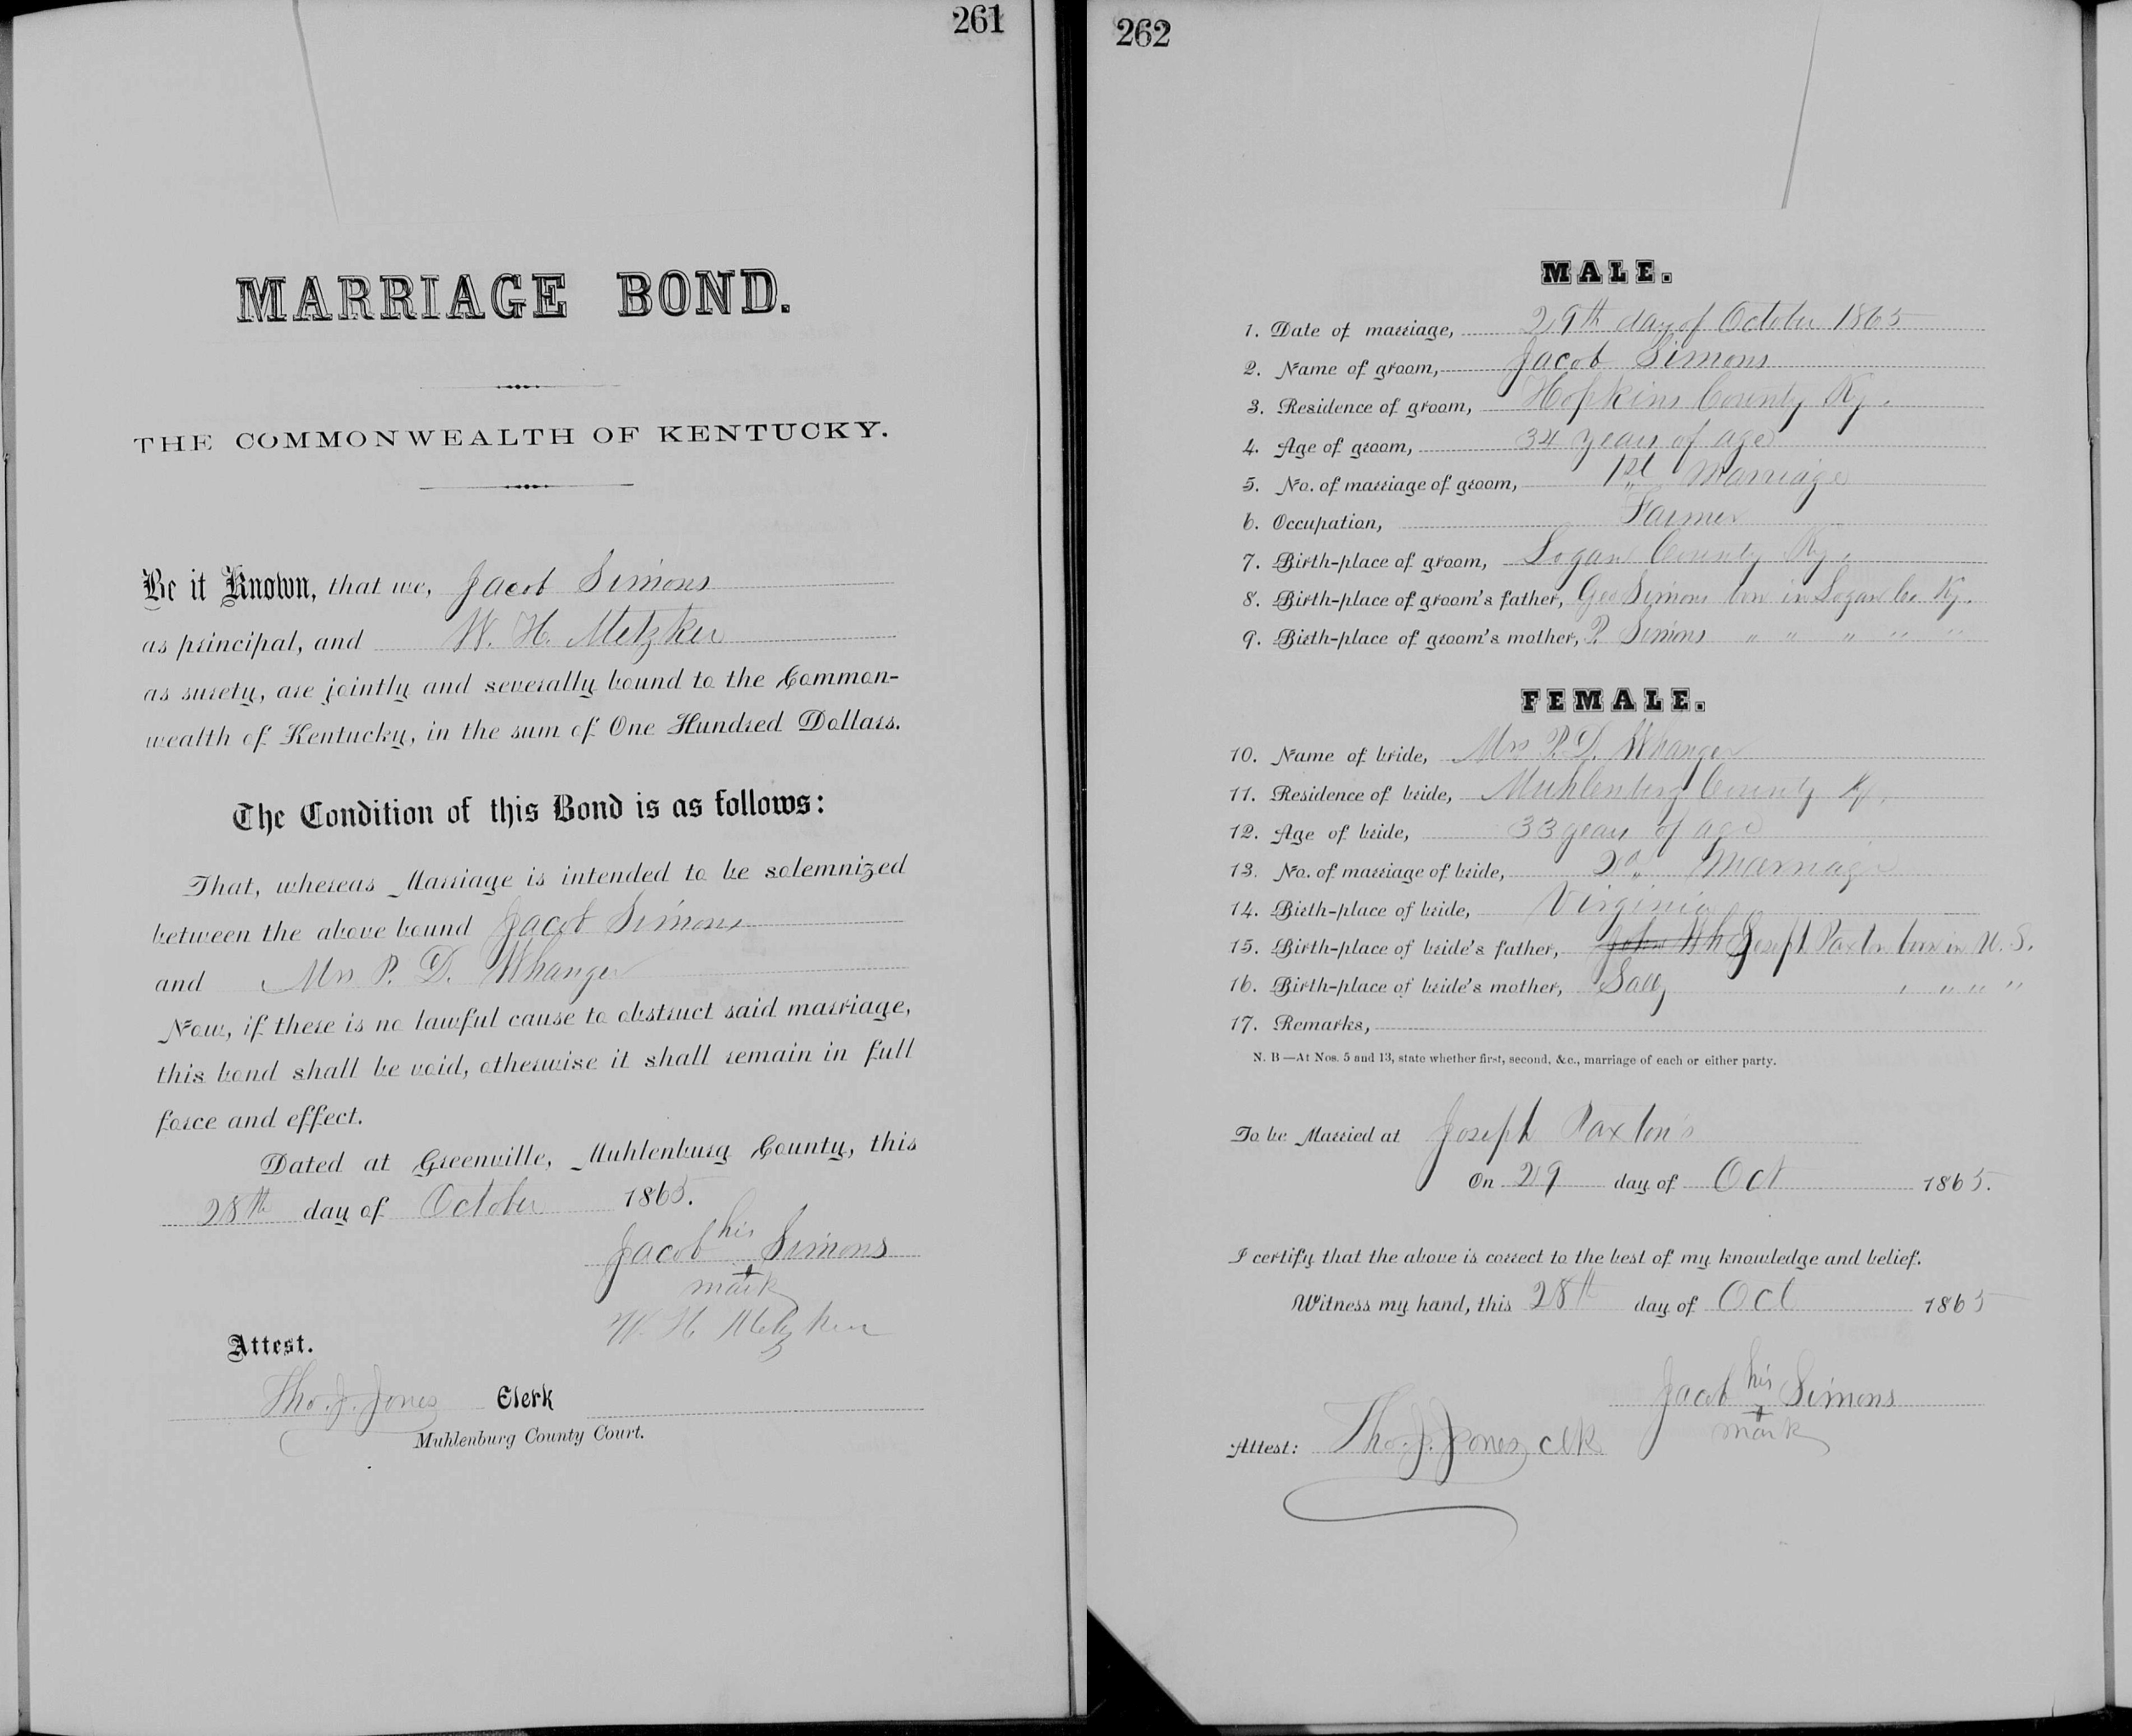 261
MARRIAGE BOND.
THE COMMONWEALTH OF KENTUCKY.
Be it Known, that we, Jacob Simons
as principal, and W. H. Metzker
as surety, are jointly and severally bound to the Common-
wealth of Kentucky, in the sum of One Hundred Dollars.
The Condition of this Bond is as follows:
That, whereas Marriage is intended to be solemnized
between the above bound Jacob Simons
and Mrs P. D. Whanger
Now, if there is no lawful cause to obstruct said marriage,
this bond shall be void, otherwise it shall remain in full
force and effect.
Dated at Greenville, Muhlenburg County, this
28th day of October 1865.
his
Jacob + Simons
mark
W. H. Metzker
Attest.
Tho. J. Jones Clerk
Muhlenburg County Court.
262
MALE.
1. Date of marriage, 29th day of October 1865
2. Name of groom, Jacob Simons
3. Residence of groom, Hopkins County Ky.
4. Age of groom, 34 years of age
5. No. of marriage of groom, 1st Marriage
6. Occupation, Farmer
7. Birth-place of groom, Logan County Ky.
8. Birth-place of groom's father, Geo Simons born in Logan Co. Ky.
9. Birth-place of groom's mother, P. Simons " " " " "
FEMALE.
10. Name of bride, Mrs P. D. Whanger
11. Residence of bride, Muhlenberg County Ky.
12. Age of bride, 33 years of age
13. No. of marriage of bride, 2d Marriage
14. Birth-place of bride, Virginia
15. Birth-place of bride's father, John Wh Joseph Paxton born in U. S.
16. Birth-place of bride's mother, Sally " " " "
17. Remarks,
N. B—At Nos. 5 and 13, state whether first, second, &c., marriage of each or either party.
To be Married at Joseph Paxton's
On 29 day of Oct 1865.
I certify that the above is correct to the best of my knowledge and belief.
Witness my hand, this 28th day of Oct 1865
his
Jacob + Simons
mark
Attest: Tho. J. Jones, clk